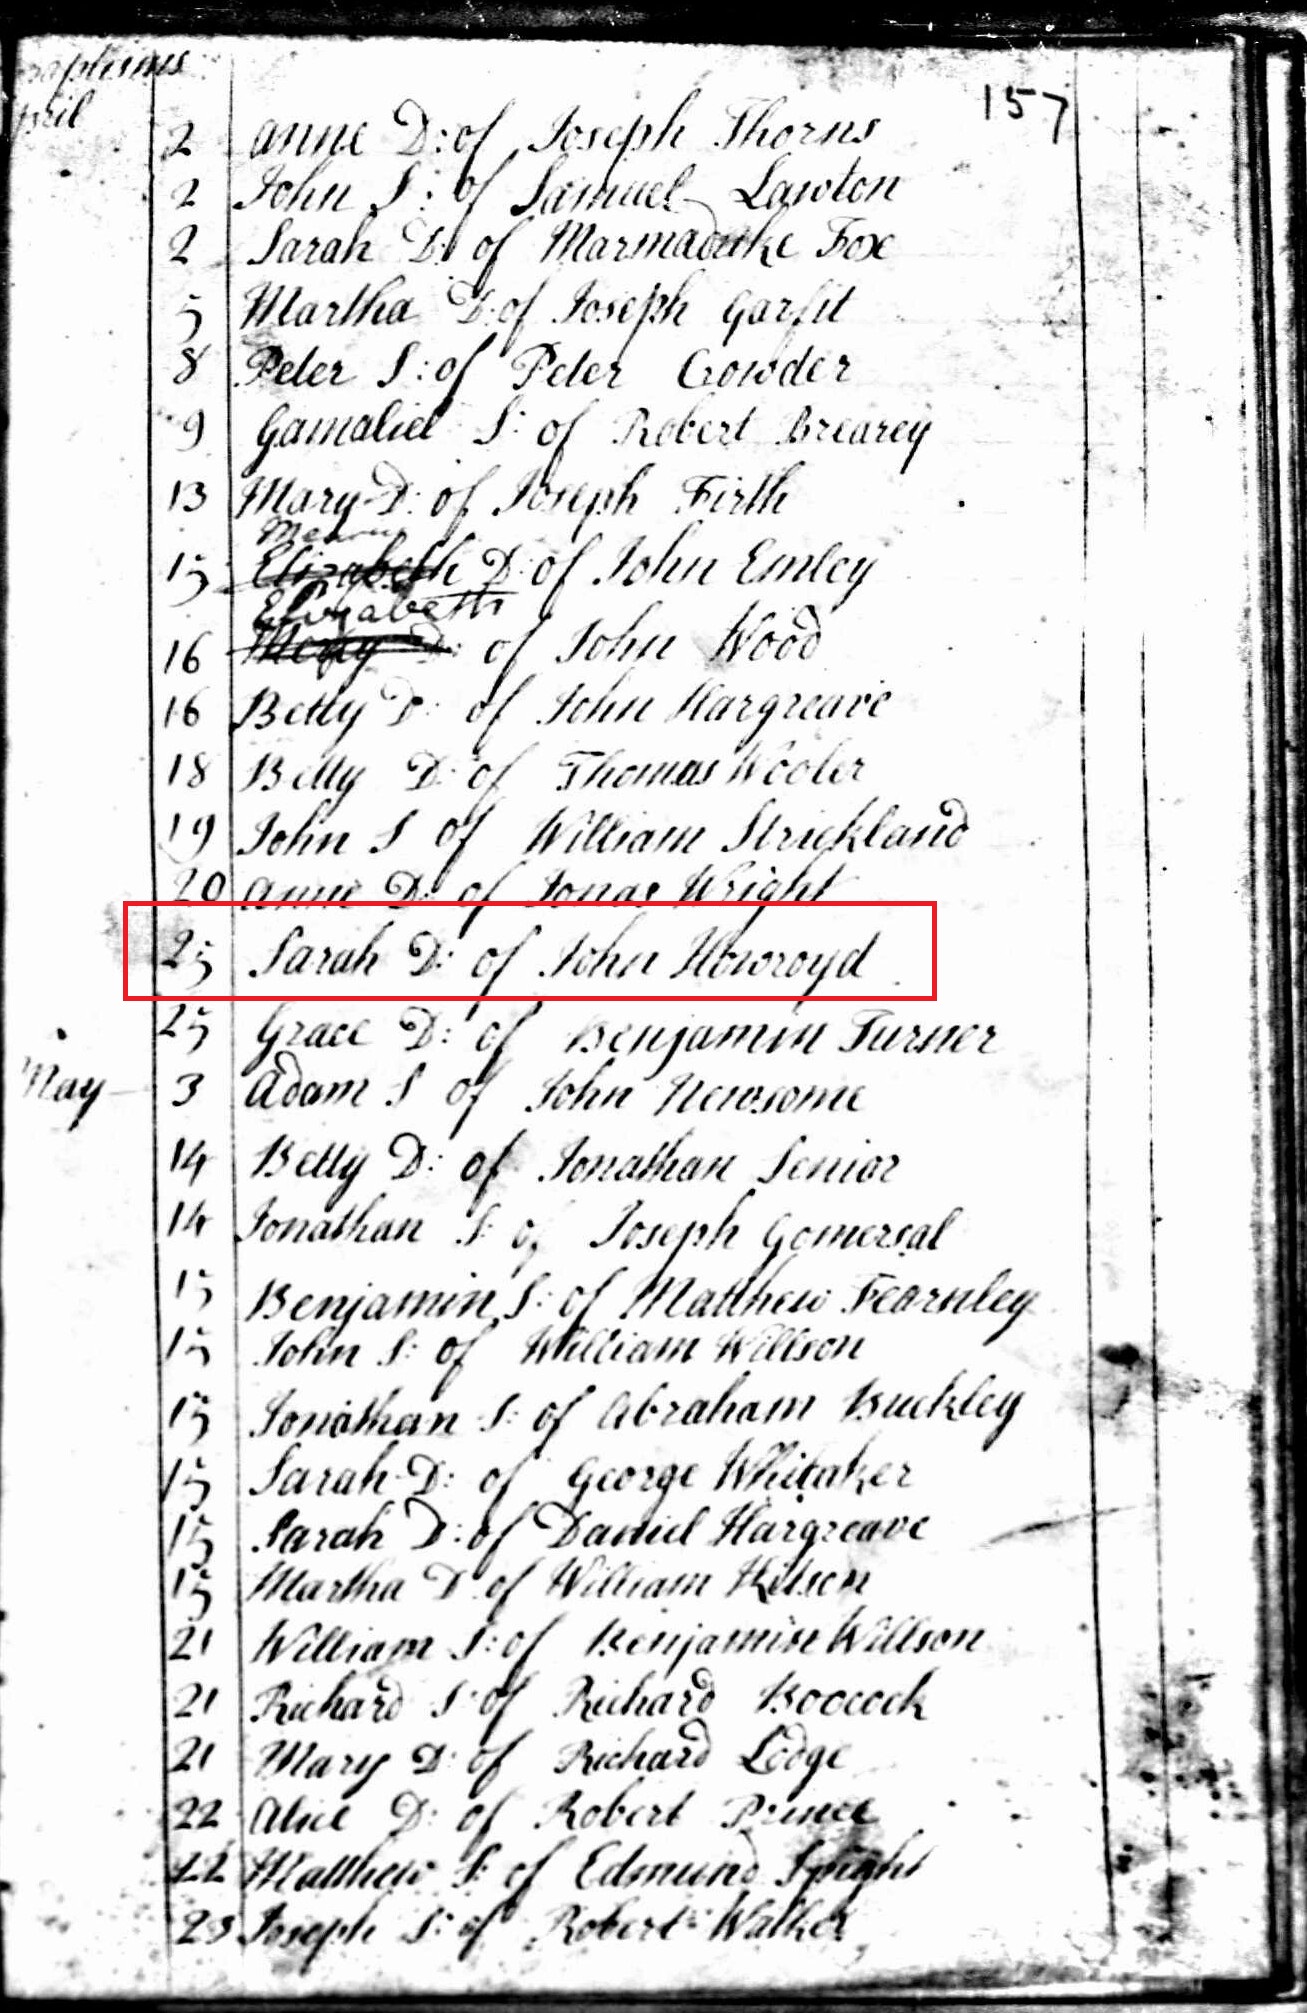 Baptisms
April
157
2 Anne D: of Joseph Thorns
2 John S: of Samuel Lawton
2 Sarah D: of Marmaduke Fox
5 Martha D: of Joseph Garfit
8 Peter S: of Peter Crowder
9 Gamaliel S: of Robert Brearey
13 Mary D: of Joseph Firth
15 Elizabeth D: of John Emley
Elizabeth
16 D: of John Wood
16 Betty D: of John Hargreave
18 Betty D: of Thomas Wooler
19 John S of William Strickland
20 Anne D: of Jonas Wright
25 Sarah D: of John Howroyd
25 Grace D: of Benjamin Turner
May 3 Adam S of John Newsome
14 Betty D: of Jonathan Senior
14 Jonathan S: of Joseph Gomersal
15 Benjamin S: of Matthew Fearnley
15 John S: of William Willson
15 Jonathan S: of Abraham Buckley
15 Sarah D: of George Whitaker
15 Sarah D: of Daniel Hargreave
15 Martha D of William Kitson
21 William S: of Benjamin Willson
21 Richard S: of Richard Boocock
21 Mary D: of Richard Lodge
22 Alice D: of Robert Prince
22 Matthew S: of Edmund Speight
23 Joseph S: of Robert Walker